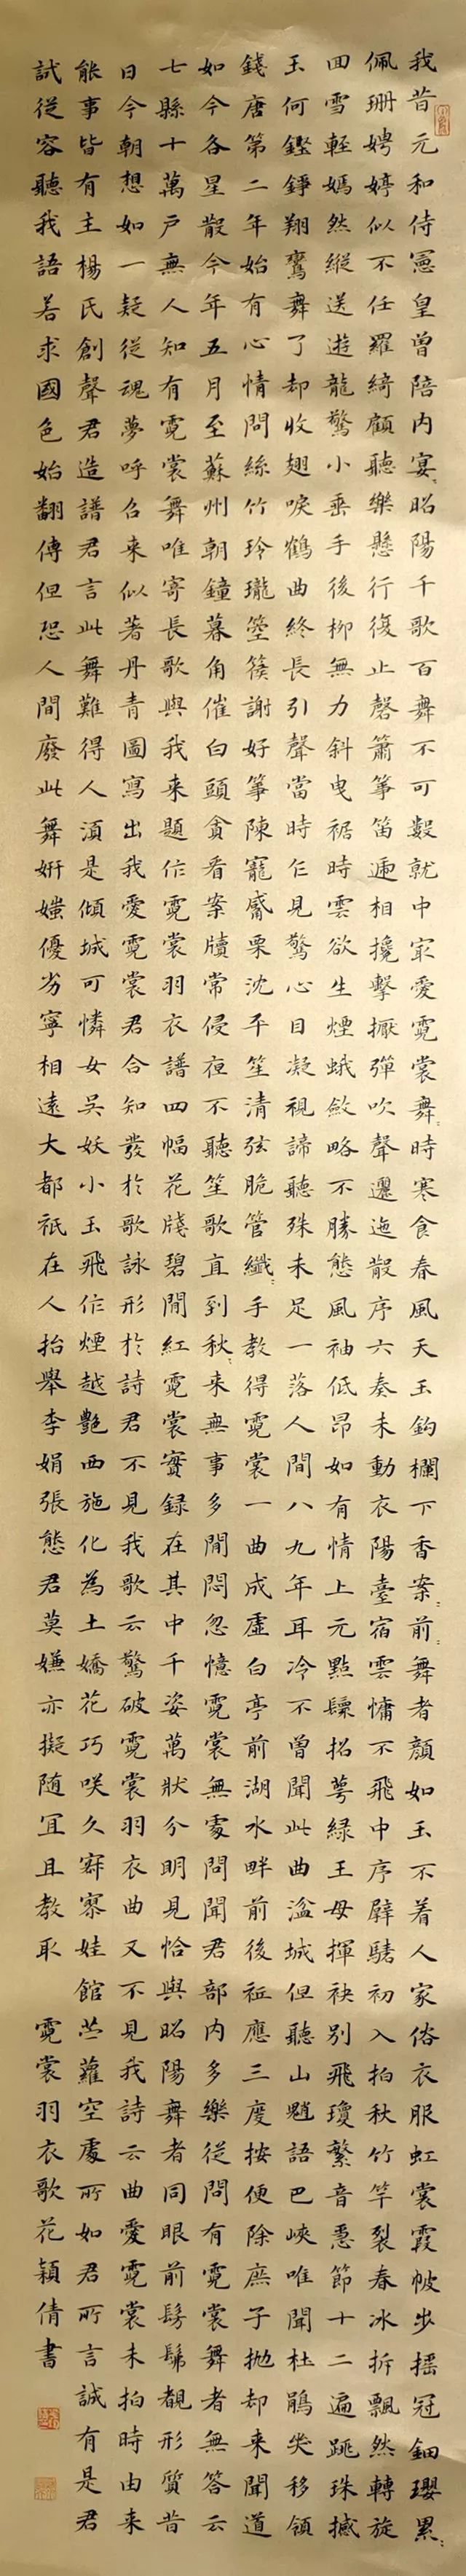 我昔元和侍憲皇曾陪内宴〻昭陽千歌百舞不可數就中寂愛霓裳舞〻時寒食春風天玉鈎欄下香案〻前〻舞者顏如玉不着人家俗衣服虹裳霞帔步搖冠鈿瓔累〻
佩珊娉婷似不任羅綺顧聽樂懸行復止磬簫箏笛遞相攙擊擫彈吹聲邐迤散序六奏未動衣陽臺宿雲慵不飛中序擘騞初入拍秋竹竿裂春冰拆飄然轉旋
回雪輕嫣然縱送遊龍驚小垂手後柳無力斜曳裾時雲欲生煙蛾斂略不勝態風袖低昂如有情上元點鬟招萼綠王母揮袂別飛瓊繁音急節十二遍跳珠撼
玉何鏗錚翔鸞舞了却收翅唳鶴曲終長引聲當時乍見驚心目凝視諦聽殊未足一落人間八九年耳冷不曾聞此曲湓城但聽山魈語巴峽唯聞杜鵑哭移領
錢唐第二年始有心情問絲竹玲瓏箜篌謝好箏陳寵觱栗沈平笙清弦脆管纖〻手教得霓裳一曲成虛白亭前湖水畔前後祗應三度按便除庶子拋却來聞道
如今各星散今年五月至蘇州朝鐘暮角催白頭貪看案牘常侵夜不聽笙歌直到秋〻來無事多閒悶忽憶霓裳無處問聞君部内多樂從問有霓裳舞者無答云
七縣十萬戶無人知有霓裳舞唯寄長歌與我来題作霓裳羽衣譜四幅花牋碧間紅霓裳實録在其中千姿萬狀分明見恰與昭陽舞者同眼前髣髴覩形質昔
日今朝想如一疑從魂夢呼召来似著丹青圖寫出我愛霓裳君合知發於歌詠形於詩君不見我歌云驚破霓裳羽衣曲又不見我詩云曲愛霓裳未拍時由来
能事皆有主楊氏創聲君造譜君言此舞難得人須是傾城可憐女吳妖小玉飛作煙越艷西施化為土嬌花巧咲久寂寥娃館苧蘿空處所如君所言誠有是君
試從容聽我語若求國色始翻傳但恐人間廢此舞妍媸優劣寧相遠大都祇在人抬舉李娟張態君莫嫌亦擬隨宜且教取 霓裳羽衣歌花穎倩書